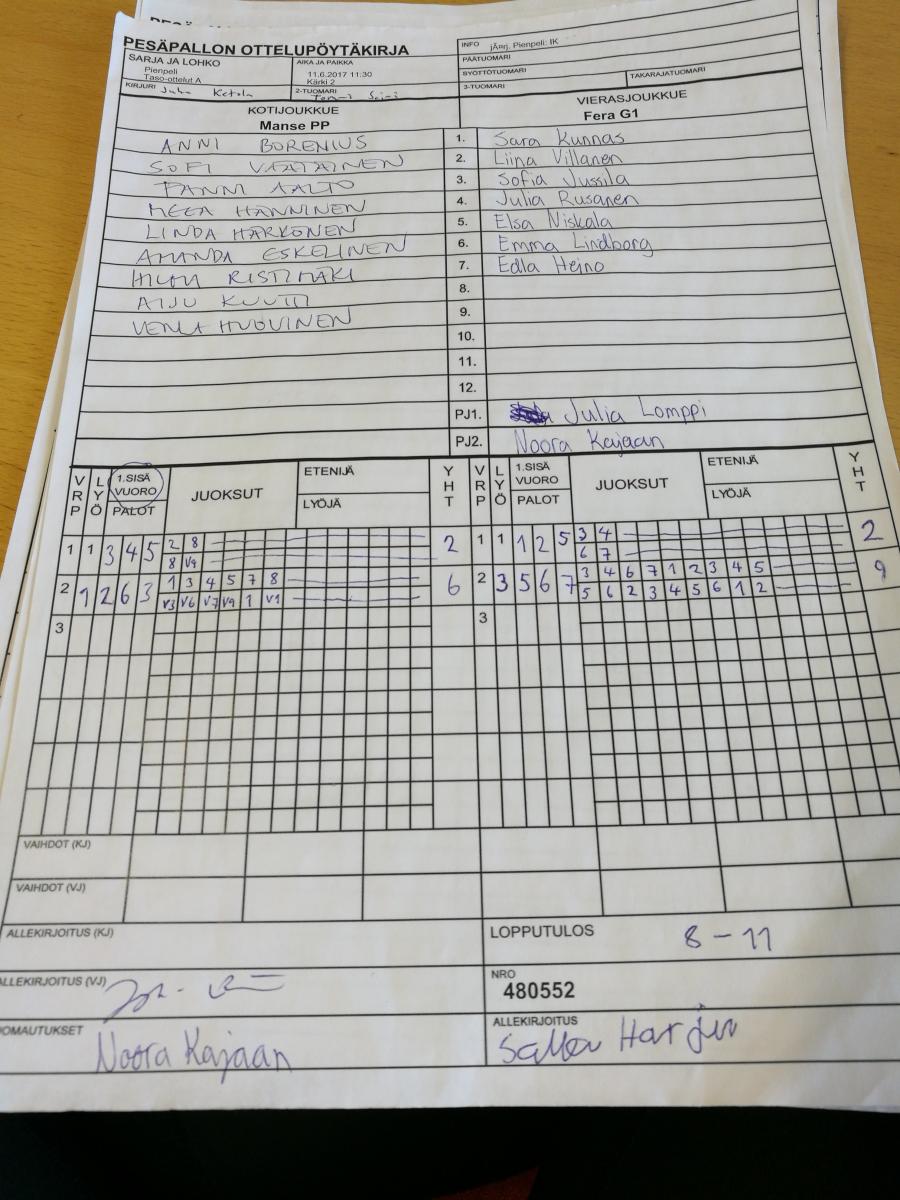 PESÄPALLON OTTELUPÖYTÄKIRJA
SARJA JA LOHKO
Pienpeli
Taso-ottelut A
AIKA JA PAIKKA
11.6.2017 11:30
Kärki 2
INFO jÄrj. Pienpeli: IK
PÄÄTUOMARI
SYÖTTÖTUOMARI
KIRJURI Juha Ketola
2-TUOMARI
3-TUOMARI
TAKARAJATUOMARI
KOTIJOUKKUE
Manse PP
VIERASJOUKKUE
Fera G1
ANNI BORENIUS 1. Sara Kunnas
SOFI VÄÄTÄINEN 2. Liina Villanen
FANNI AALTO 3. Sofia Jussila
MEEA HÄNNINEN 4. Julia Rusanen
LINDA HÄRKÖNEN 5. Elsa Niskala
AMANDA ESKELINEN 6. Emma Lindborg
RISTIMÄKI 7. Edla Heino
AIJU 8.
VENLA HUOVINEN 9.
10.
11.
12.
PJ1. Julia Lomppi
PJ2. Noora Kajaan
VRP LYÖ 1.SISÄ VUORO PALOT JUOKSUT ETENIJÄ LYÖJÄ YHT VRP LYÖ 1.SISÄ VUORO PALOT JUOKSUT ETENIJÄ LYÖJÄ YHT
1 1 3 4 5 2 8 2 1 1 1 2 5 3 4 2
8 V9 6 7
2 1 2 6 3 1 3 4 5 7 8 6 2 3 5 6 7 3 4 6 7 1 2 3 4 5 9
V3 V6 V7 V9 1 V1 5 6 2 3 4 5 6 1 2
3 3
VAIHDOT (KJ)
VAIHDOT (VJ)
ALLEKIRJOITUS (KJ)
LOPPUTULOS 8 - 11
ALLEKIRJOITUS (VJ)
NRO
480552
OMAUTUKSET
Noora Kajaan
ALLEKIRJOITUS